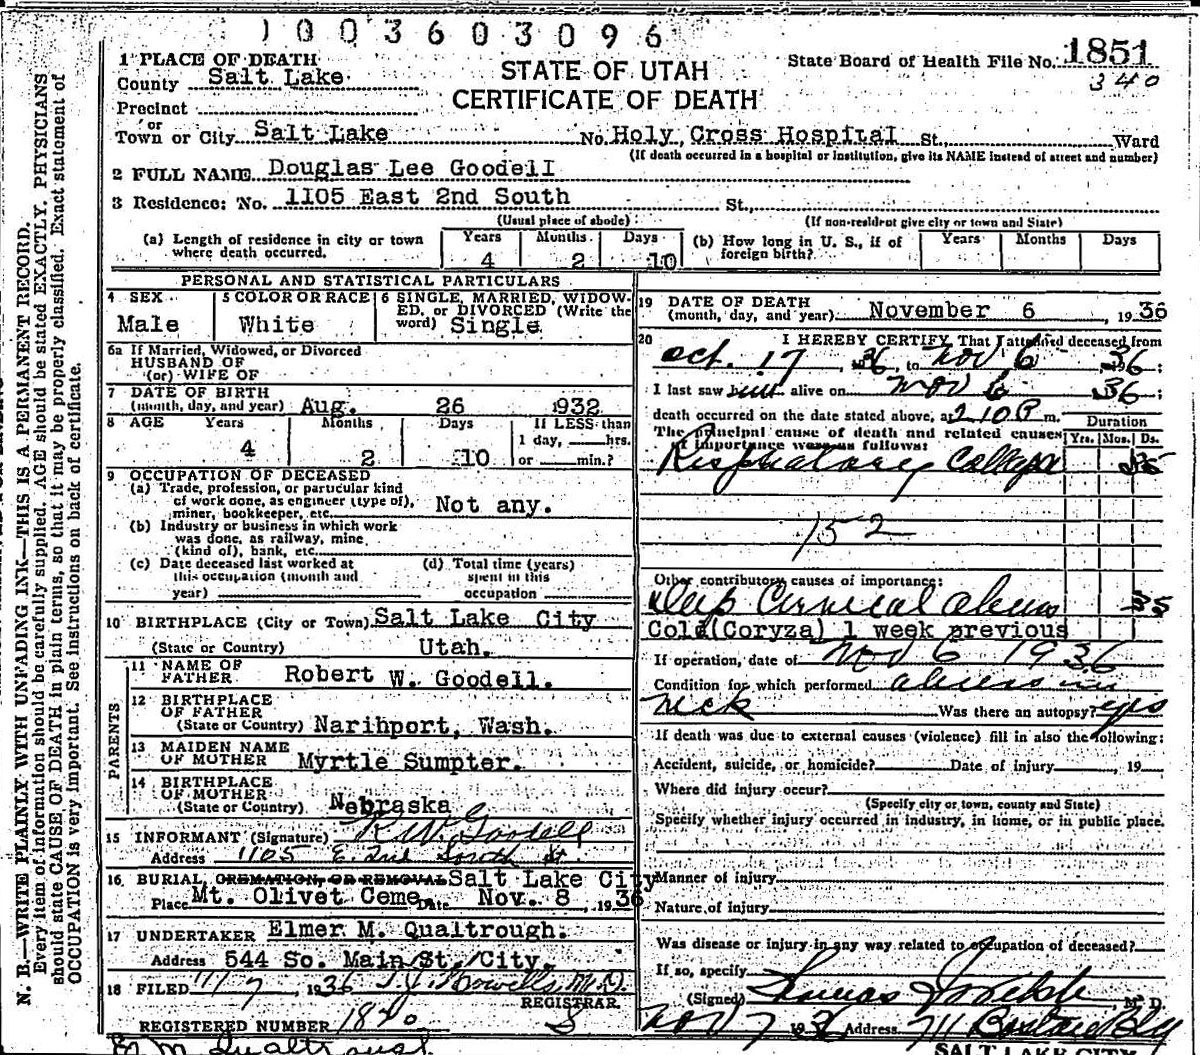 1003603096
1 PLACE OF DEATH
County Salt Lake
STATE OF UTAH
CERTIFICATE OF DEATH
State Board of Health File No. 1851
340
Precinct
or
Town or City Salt Lake No. Holy Cross Hospital St., Ward
(If death occurred in a hospital or institution, give its NAME instead of street and number)
2 FULL NAME Douglas Lee Goodell
3 Residence: No. 1105 East 2nd South St.,
(Usual place of abode) (If non-resident give city or town and State)
(a) Length of residence in city or town where death occurred. Years 4 Months 2 Days 10
(b) How long in U. S., if of foreign birth? Years Months Days
PERSONAL AND STATISTICAL PARTICULARS
4 SEX Male
5 COLOR OR RACE White
6 SINGLE, MARRIED, WIDOWED, or DIVORCED (Write the word) Single
6a If Married, Widowed, or Divorced
HUSBAND OF
(or) WIFE OF
7 DATE OF BIRTH
(month, day, and year) Aug. 26 1932
8 AGE Years 4 Months 2 Days 10 If LESS than 1 day, hrs. or min.?
9 OCCUPATION OF DECEASED
(a) Trade, profession, or particular kind
of work done, as engineer (type of),
miner, bookkeeper, etc. Not any.
(b) Industry or business in which work
was done, as railway, mine
(kind of), bank, etc.
(c) Date deceased last worked at
this occupation (month and
year)
(d) Total time (years)
spent in this
occupation
10 BIRTHPLACE (City or Town) Salt Lake City
(State or Country) Utah.
PARENTS
11 NAME OF FATHER Robert W. Goodell.
12 BIRTHPLACE OF FATHER
(State or Country) Narihport, Wash.
13 MAIDEN NAME OF MOTHER Myrtle Sumpter.
14 BIRTHPLACE OF MOTHER
(State or Country) Nebraska
15 INFORMANT (Signature) R. W. Goodell
Address 1105 E. 2nd South St.
16 BURIAL, CREMATION, OR REMOVAL Salt Lake City
Place Mt. Olivet Ceme. Date Nov. 8, 1936
17 UNDERTAKER Elmer M. Qualtrough.
Address 544 So. Main St. City.
18 FILED 11/7, 1936 T. J. Howells, M.D.
REGISTRAR
REGISTERED NUMBER 1840 S
E. M. Qualtrough
19 DATE OF DEATH
(month, day, and year) November 6, 1936
20 I HEREBY CERTIFY, That I attended deceased from
Oct. 17, 1936, to Nov 6, 1936;
I last saw him alive on Nov 6 1936;
death occurred on the date stated above, at 2 10 P m.
The principal cause of death and related causes
of importance were as follows:
Duration
Yrs. Mos. Ds.
Respiratory Collapse
152
Other contributory causes of importance:
Deep Cervical abcess
Cold (Coryza) 1 week previous
If operation, date of Nov 6 1936
Condition for which performed abcess in
neck Was there an autopsy? yes
If death was due to external causes (violence) fill in also the following:
Accident, suicide, or homicide? Date of injury, 19
Where did injury occur?
(Specify city or town, county and State)
Specify whether injury occurred in industry, in home, or in public place.
Manner of injury
Nature of injury
Was disease or injury in any way related to occupation of deceased?
If so, specify
(Signed) Thomas J., M. D.
Nov 7 1936 Address 711 Boston Bldg
SALT LAKE CITY
N. B.—WRITE PLAINLY WITH UNFADING INK—THIS IS A PERMANENT RECORD.
Every item of information should be carefully supplied. AGE should be stated EXACTLY. PHYSICIANS
should state CAUSE OF DEATH in plain terms, so that it may be properly classified. Exact statement of
OCCUPATION is very important. See instructions on back of certificate.